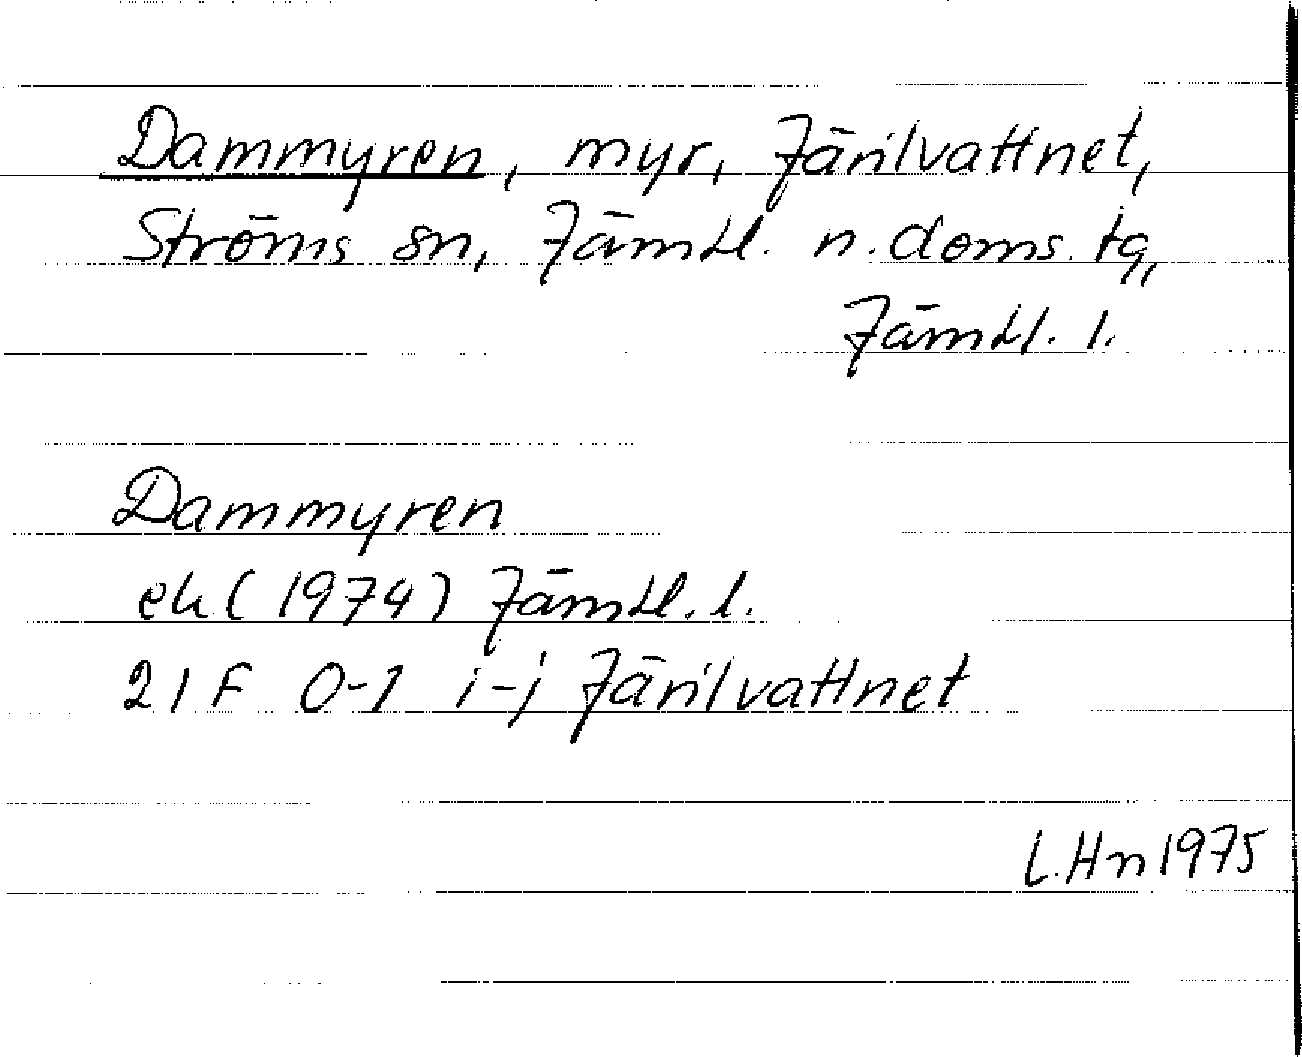 Dammyren, myr, Järilvattnet,
Ströms sn, Jämtl. n. doms. tg,
Jämtl. l.
Dammyren
ek (1974) Jämtl. l.
21F 0-1 i-j Järilvattnet
L.Hn 1975